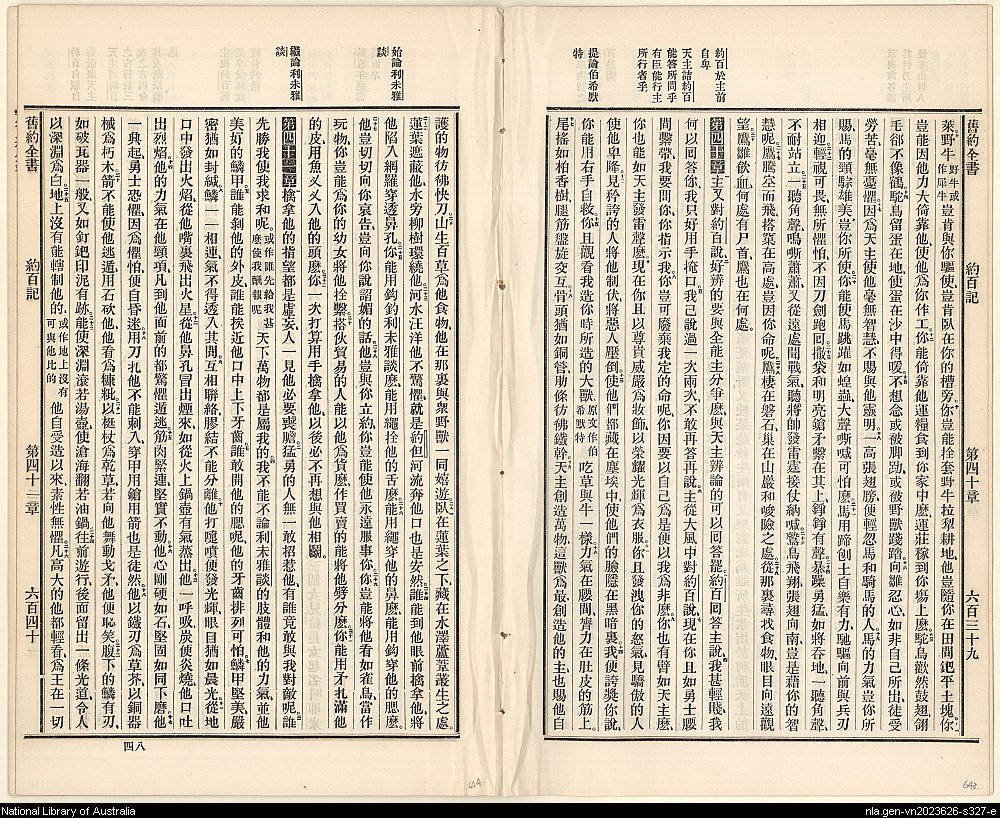 約百於主前
自卑
天主詰約百
能答所問乎
有巨能行主
所行者乎
提論伯希默
特
舊約全書 約百記 第四十章 六百三十九
萊野牛野牛或作犀牛豈肯與你驅使豈肯臥在你的槽旁你豈能拴套野牛拉犂耕地他豈隨你在田間耙平土塊你
豈能因他力大倚靠他使他爲你作工你能倚靠他運糧食到你家中麼運莊稼到你塲上麼駝鳥歡然鼓翅翎
毛郤不像鸛駝鳥留蛋在地使蛋在沙中得暖不想念或被脚跐或被野獸踐踏向雛忍心如非自己所出徒受
勞苦毫無憂懼因爲天主使他毫無智慧不賜與他靈明一高張翅膀便輕忽馬和騎馬的人馬的力氣豈你所
賜馬的頸騌雄美豈你所使你能使馬跳躍如蝗蟲大聲嘶喊可怕麼馬用蹄刨土自樂有力馳驅向前與兵刃
相迎輕視可畏無所懼怕不因刀劍跑回撒袋和明亮鎗矛繫在其上錚錚有聲暴躁勇猛如將吞地一聽角聲
不耐站立一聽角聲嗚嘶蕭蕭又從遠處聞戰氣聽將帥發雷霆接仗吶喊鷲鳥飛翔張翅向南豈是藉你的智
慧呢鷹騰空而飛搭窠在高處豈因你命呢鷹棲在磐石巢在山巖和峻險之處從那裏尋找食物眼目向遠觀
望鷹雛飲血何處有尸首鷹也在何處
第四十章主又對約百說好辨的要與全能主分爭麼與天主辨論的可以回答罷約百回答主說我甚輕賤我
何以回答你我只好用手掩口我已說過一次兩次不敢再答再說主從大風中對約百說現在你且如勇士腰
間繫帶我要問你你指示我你豈可廢棄我定的命呢你因要以自己爲是便以我爲非麼你也有臂如天主麼
你也能如天主發雷聲麼現在你且以尊貴威嚴爲妝飾以榮耀光輝爲衣服你且發洩你的怒氣見驕傲的人
使他卑降見矜誇的人將他制伏將惡人壓倒使他們都藏在塵埃中使他們的臉隱在黑暗裏我便誇獎你說
你能用右手自救你且觀看我造你時所造的大獸原文作伯希默特吃草與牛一樣力氣在腰間膂力在肚皮的筋上
尾搖如柏香樹腿筋盤旋交互骨頭猶如銅管肋條彷彿鐵幹天主創造萬物這獸爲最創造他的主也賜他自
始論利未雅
談
繼論利未雅
談
護的物彷彿快刀山生百草爲他食物他在那裏與衆野獸一同嬉遊臥在蓮葉之下藏在水澤蘆葦叢生之處
蓮葉遮蔽他水旁柳樹環繞他河水汪洋他不驚懼就是約但河流奔他口他也是安然誰能到他眼前擒拿他將
他陷入網羅穿透鼻孔你能用鈎鈎利未雅談麼能用繩拴他的舌麼能用繩穿他的鼻麼能用鈎穿他的腮麼
他豈切切向你哀告豈向你說諂媚的話他豈與你立約你豈能使他永遠服事你你豈能將他看如雀鳥當作
玩物你豈能爲你的幼女將他拴繫搭伙貿易的人能以他爲貨麼作買賣的能將他劈分麼你能用矛扎滿他
的皮用魚义义入他的頭麼你一次打算用手擒拿他以後必不再想與他相鬬
第四十一章擒拿他的指望都是虛妄人一見他必要喪膽猛勇的人無一敢招惹他有誰竟敢與我對敵呢誰
先勝我使我求和呢或作誰先給我甚麼使我酬報呢天下萬物都是屬我的我不能不論利未雅談的肢體和他的力氣並他
美好的鱗甲誰能剝他的外皮誰能挨近他口中上下牙齒誰敢開他的腮呢他的牙齒排列可怕鱗甲堅美嚴
密猶如封緘鱗一一相連氣不得透入其間互相聯絡膠結不能分離他打嚏噴便發光輝眼目猶如晨光從他
口中發出火焰從他嘴裏飛出火星從他鼻孔冒出煙來如從火上鍋壺有氣蒸出他一呼吸炭便炎燒他口吐
出烈焰他的力氣在他頸項凡到他面前的都驚懼逃遁筋肉緊連堅實不動他心剛硬如石堅固如同下磨他
一興起勇士恐懼因爲懼怕便自昏迷用刀扎他不能刺入穿甲用鎗用箭也是徒然他以鐵刃爲草芥以銅器
械爲朽木箭不能使他逃遁用石砍他他看爲糠粃以梃杖爲乾草若向他舞動戈矛他便恥笑腹下的鱗有刃
如破瓦器一般又如釘鈀印泥有跡能使深淵滾若湯壺使滄海翻若油鍋往前遊行後面留出一條光道令人
以深淵爲白地上沒有能轄制他的或作地上沒有可與他比的他自受造以來素性無懼凡高大的他都輕看爲王在一切
舊約全書 約百記 第四十一章 六百四十
四八
644
643
National Library of Australia
nla.gen-vn2023626-s327-e